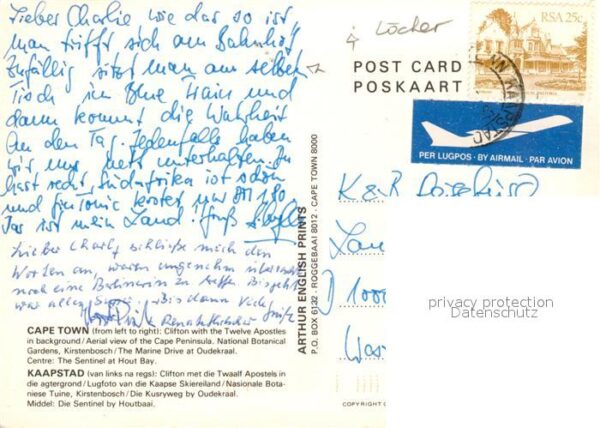 Lieber Charlie wie das so ist,
man trifft sich am Bahnhof
Zufällig sitzt man am selben
Tisch im Blue Train und
dann kommt die Wahrheit
An den Tag. Jedenfalls haben
wir uns nett unterhalten. Du
hast recht, Südafrika ist schön
und kostet nur DM 1,80
Das ist mein Land. Gruß
Lieber Charly schließe mich den
Worten an, waren angenehm überrascht
noch eine Berlinerin zu treffen
war alles Bis dann
Löcher
POST CARD
POSKAART
RSA 25c
KAAPSTAD
PER LUGPOS · BY AIRMAIL · PAR AVION
ARTHUR ENGLISH PRINTS
P.O. BOX 6132 · ROGGEBAAI 8012 · CAPE TOWN 8000
K & R
D 1000
privacy protection
Datenschutz
CAPE TOWN (from left to right): Clifton with the Twelve Apostles
in background / Aerial view of the Cape Peninsula. National Botanical
Gardens, Kirstenbosch / The Marine Drive at Oudekraal.
Centre: The Sentinel at Hout Bay.
KAAPSTAD (van links na regs): Clifton met die Twaalf Apostels in
die agtergrond / Lugfoto van die Kaapse Skiereiland / Nasionale Bota-
niese Tuine, Kirstenbosch / Die Kusryweg by Oudekraal.
Middel: Die Sentinel by Houtbaai.
COPYRIGHT